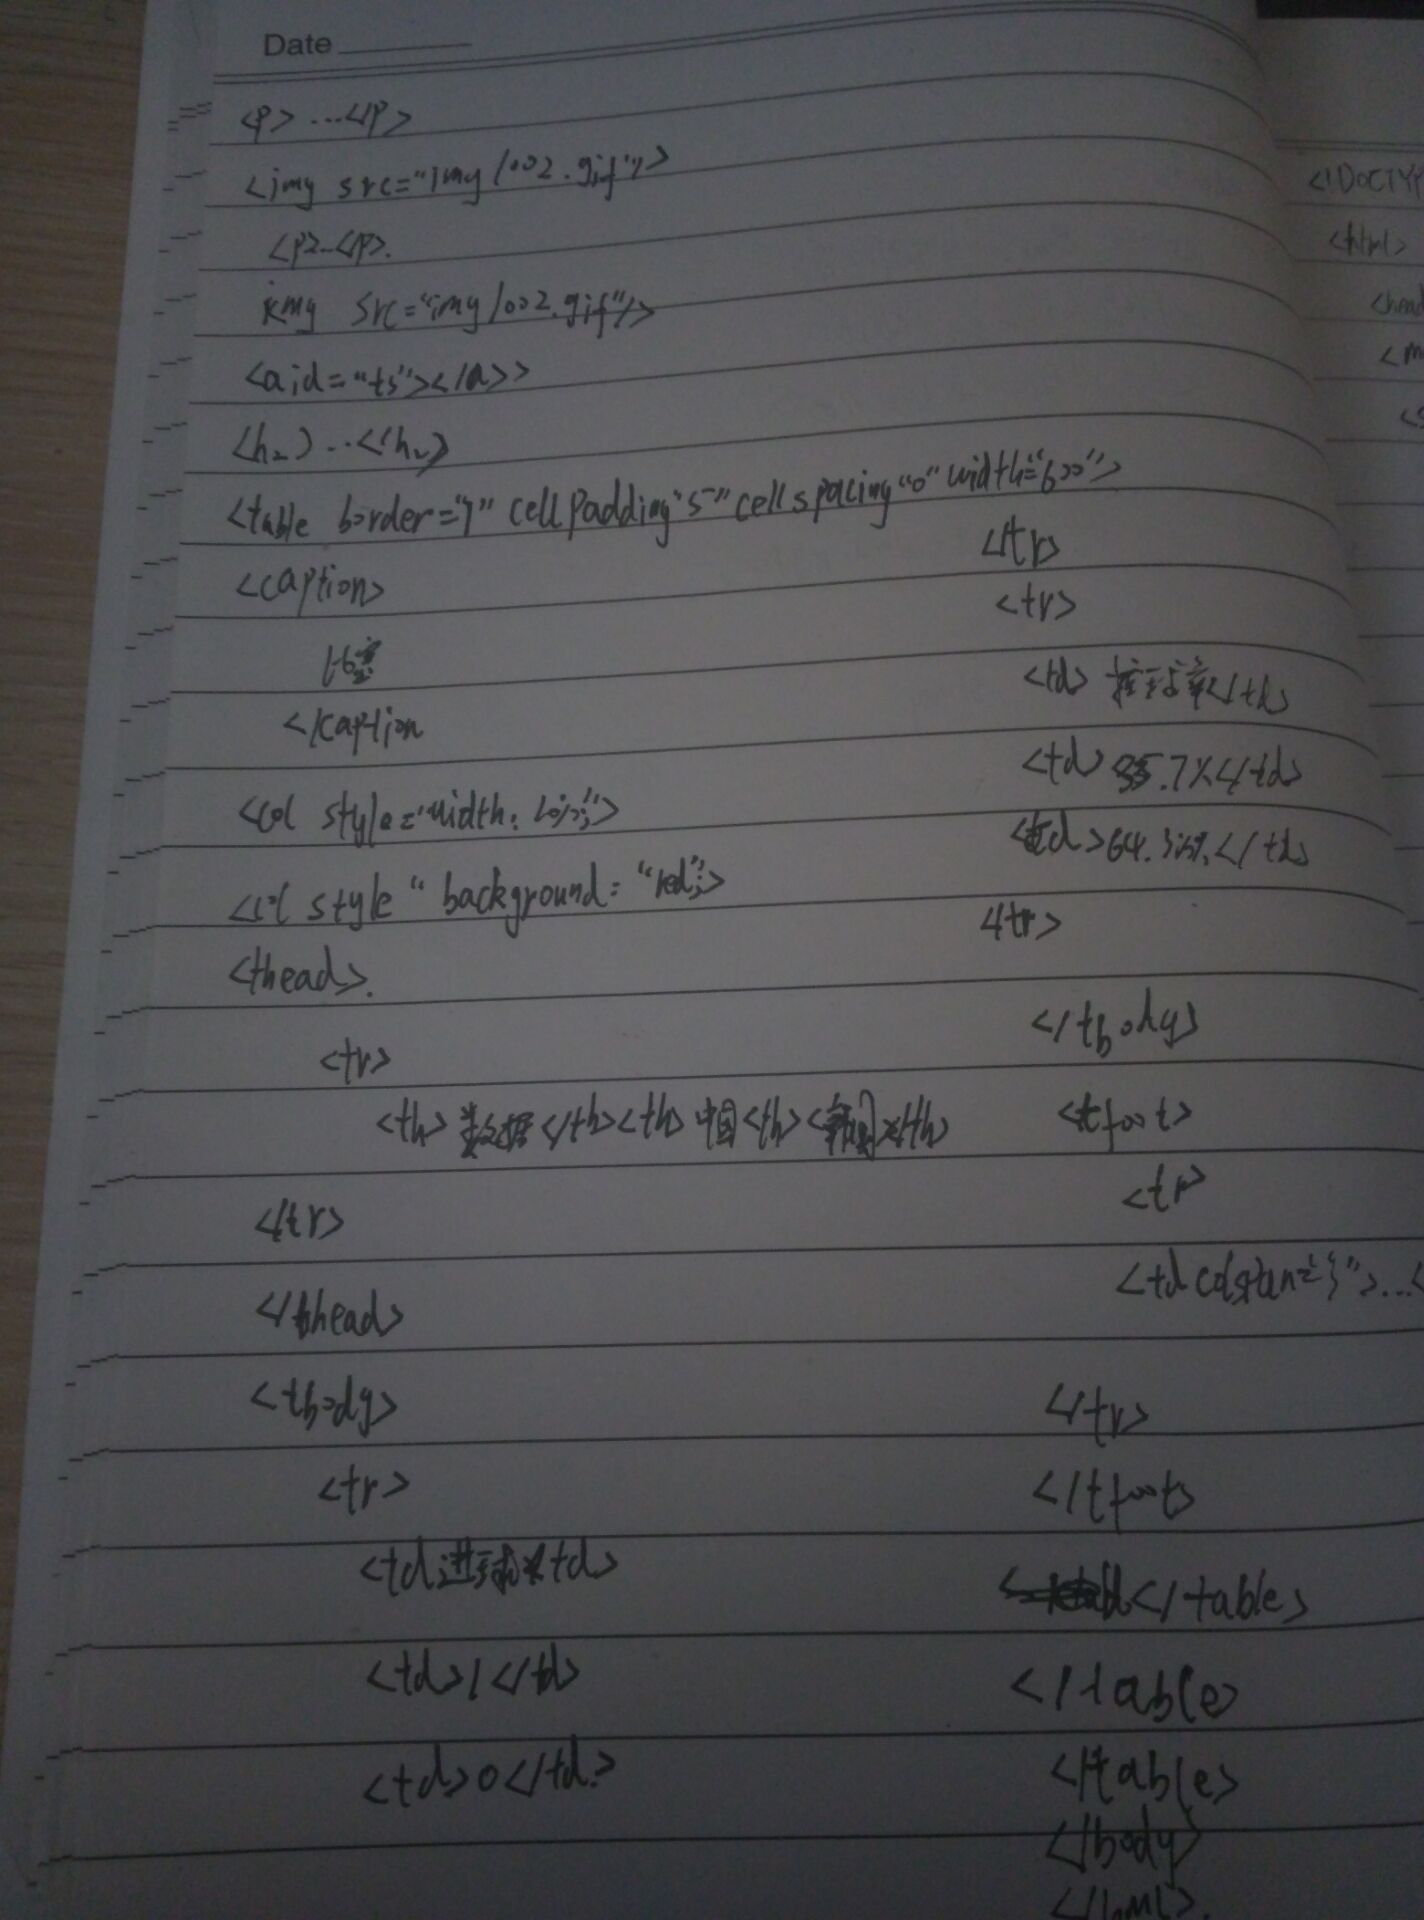 Date
<p> ...</p>
<img src="img/002.gif"/>
<p>...</p>.
img src="img/002.gif"/>
<a id="ts"></a>>
<h2>...</h2>
<table border="1" cellpadding"5" cellspacing"0" width="600">
<caption>
</caption
<col style="width:
<col style " background: "red;">
<thead>.
<tr>
<th>数据</th><th>中国<th><韩国></th>
</tr>
</thead>
<tbody>
<tr>
<td进球
td>
<td>1</td>
<td>0</td>
</tr>
<tr>
<td>控球率</td>
<td>35.7%</td>
<td>64.3%</td>
</tr>
</tbody>
<tfoot>
<tr>
<td colspan="3">...<
</tr>
</tfoot>
</table>
</table>
</table>
</body>
</html>.
<!DOCTYP
<html>
<head
<m